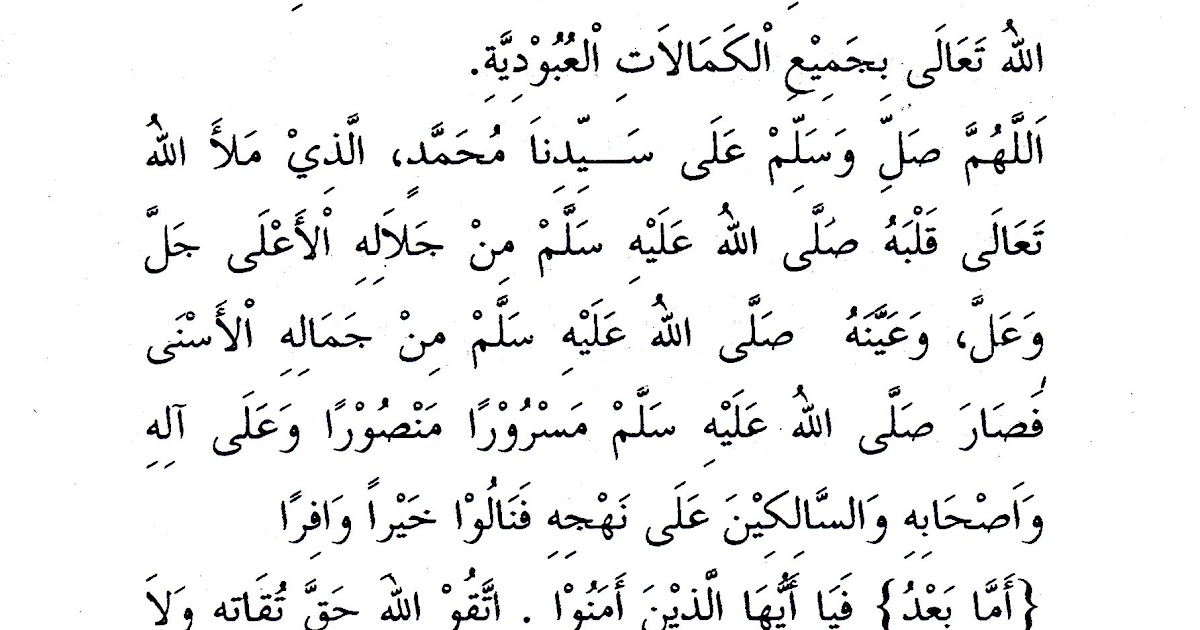 اللهُ تَعَالَى بِجَمِيْعِ اْلكَمَالاَتِ اْلعُبُوْدِيَّةِ.
اَللَّهُمَّ صَلِّ وَسَلِّمْ عَلَى سَــيِّدِنِاَ مُحَمَّدٍ، الَّذِيْ مَلأَ اللهُ
تَعَالَى قَلْبَهُ صَلَّى اللهُ عَلَيْهِ سَلَّمْ مِنْ جَلاَلِهِ اْلأَعْلَى جَلَّ
وَعَلَّ، وَعَيَّنَهُ صَلَّى اللهُ عَلَيْهِ سَلَّمْ مِنْ جَمَالِهِ اْلأَسْنَى
فَصَارَ صَلَّى اللهُ عَلَيْهِ سَلَّمْ مَسْرُوْرًا مَنْصُوْرًا وَعَلَى آلِهِ
وَاَصْحَابِهِ وَالسَّالِكِيْنَ عَلَى نَهْجِهِ فَنَالُوْا خَيْراً وَافِرًا
{أَمَّا بَعْدُ} فَيَا أَيُّهَا الَّذِيْنَ أَمَنُوْا . اتَّقُوْ اللهَ حَقَّ تُقَاتِه وَلاَ